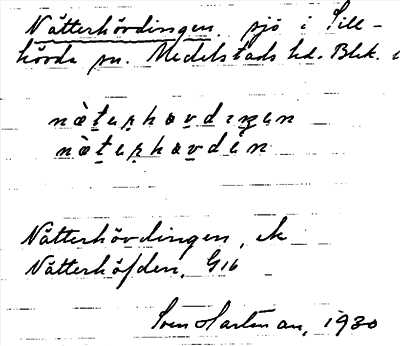 Nätterhövdingen, sjö i Till-
hörda sn. Medelstads hd. Blek.
nä̀teṛhøvdiŋen
nä̀teṛhøvdén
Nätterhövdingen, ek
Nätterhöfden, G16
Sven Hartman, 1930